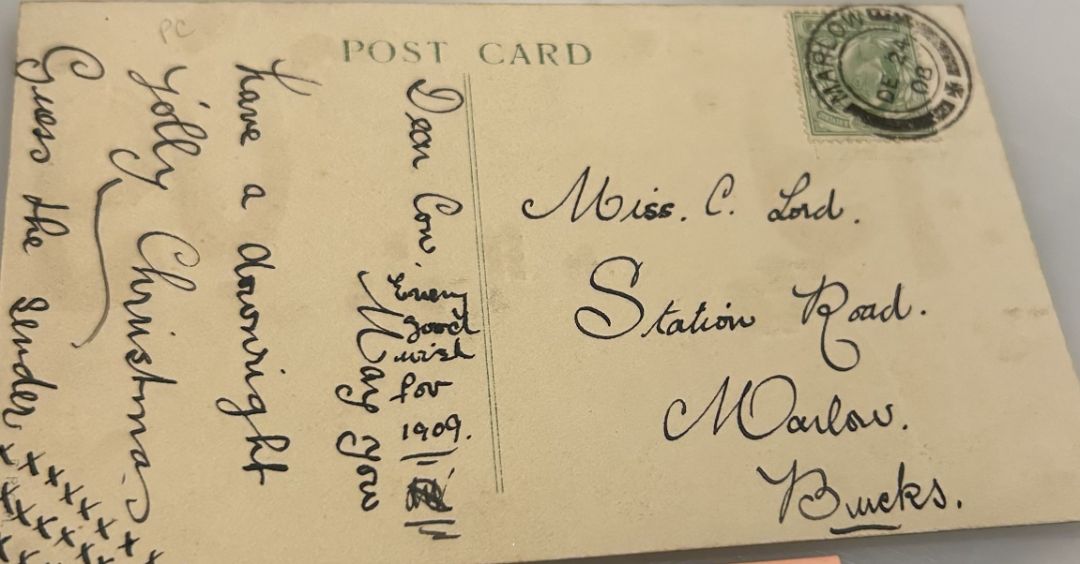 PC
POST CARD
MARLOW
DE 24
08
Dear Con,
May you
have a downright
jolly Christmas
Guess the sender.
x x x x x x
x x x x x x
x x x
Every
good
wish
for
1909.
Miss. C. Lord.
Station Road.
Marlow.
Bucks.